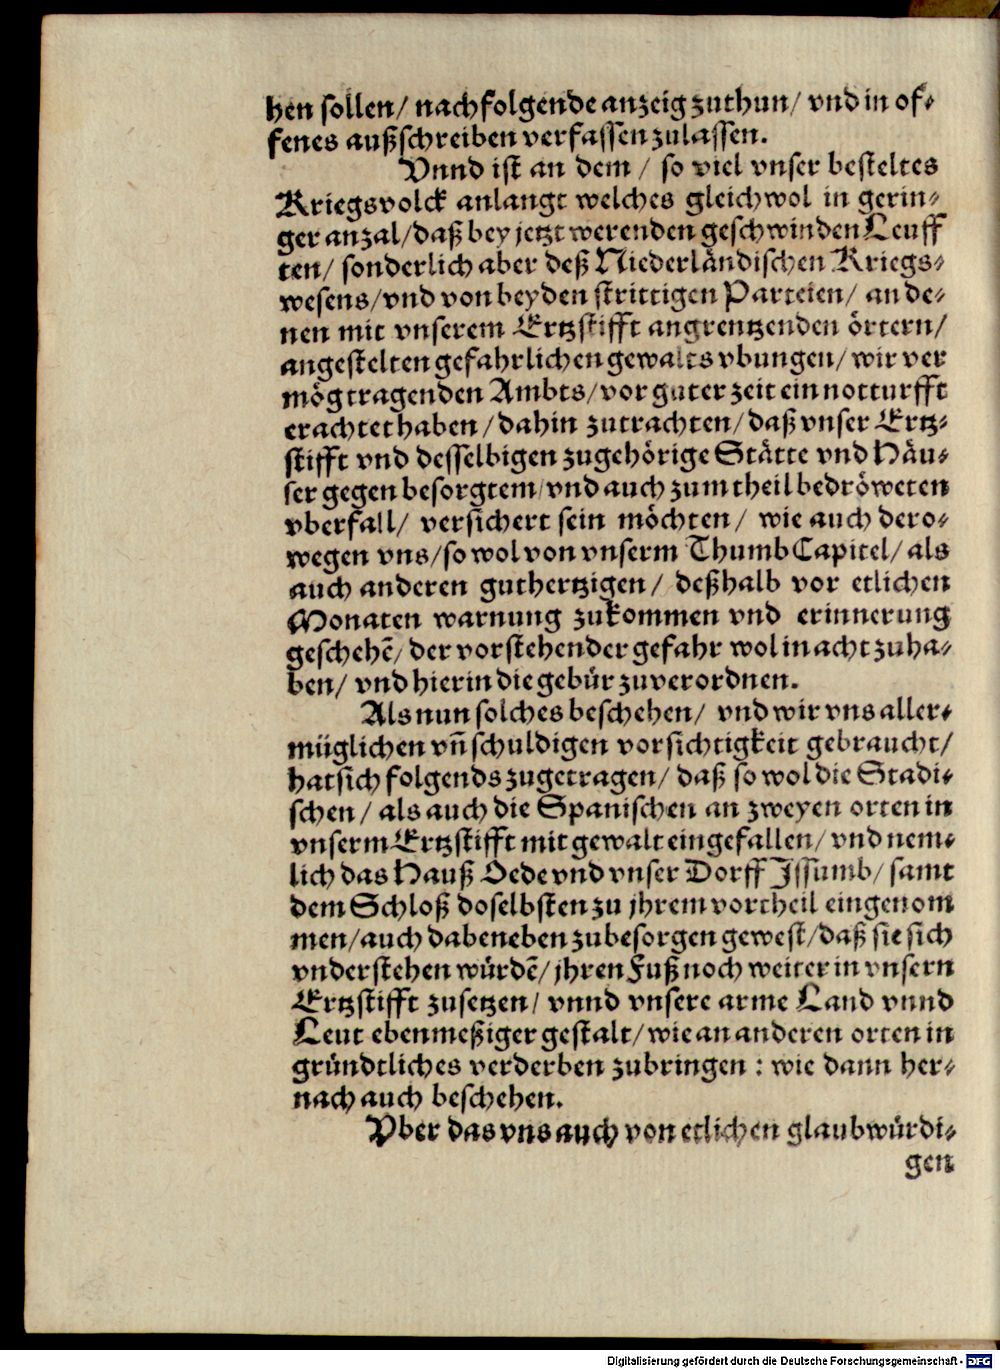 hen sollen/ nachfolgende anzeig zuthun/ vnd in of-
fenes außschreiben verfassen zulassen.
Vnnd ist an dem/ so viel vnser besteltes
Kriegsvolck anlangt welches gleichwol in gerin-
ger anzal/ daß bey jetzt werenden geschwinden Leuff
ten/ sonderlich aber deß Niederländischen Kriegs-
wesens/ vnd von beyden strittigen Parteien/ an de-
nen mit vnserem Ertzstifft angrentzenden örtern/
angestelten gefahrlichen gewalts vbungen/ wir ver
mög tragenden Ambts/ vor guter zeit ein notturfft
erachtet haben/ dahin zutrachten/ daß vnser Ertz-
stifft vnd desselbigen zugehörige Stätte vnd Häu-
ser gegen besorgtem/ vnd auch zum theil bedröweten
vberfall/ versichert sein möchten/ wie auch dero-
wegen vns/ so wol von vnserm Thumb Capitel/ als
auch anderen guthertzigen/ deßhalb vor etlichen
Monaten warnung zukommen vnd erinnerung
geschehẽ/ der vorstehender gefahr wol in acht zuha-
ben/ vnd hierin die gebür zuverordnen.
Als nun solches beschehen/ vnd wir vns aller-
müglichen vñ schuldigen vorsichtigkeit gebraucht/
hat sich folgends zugetragen/ daß so wol die Stadi-
schen/ als auch die Spanischen an zweyen orten in
vnserm Ertzstifft mit gewalt eingefallen/ vnd nem-
lich das Hauß Oede vnd vnser Dorff Issumb/ samt
dem Schloß doselbsten zu jhrem vortheil eingenom
men/ auch dabeneben zubesorgen gewest/ daß sie sich
vnderstehen würdẽ/ jhren Fuß noch weiter in vnsern
Ertzstifft zusetzen/ vnnd vnsere arme Land vnnd
Leut ebenmeßiger gestalt/ wie an anderen orten in
gründtliches verderben zubringen : wie dann her-
nach auch beschehen.
Vber das vns auch von etlichen glaubwürdi-
gen
Digitalisierung gefördert durch die Deutsche Forschungsgemeinschaft - DFG